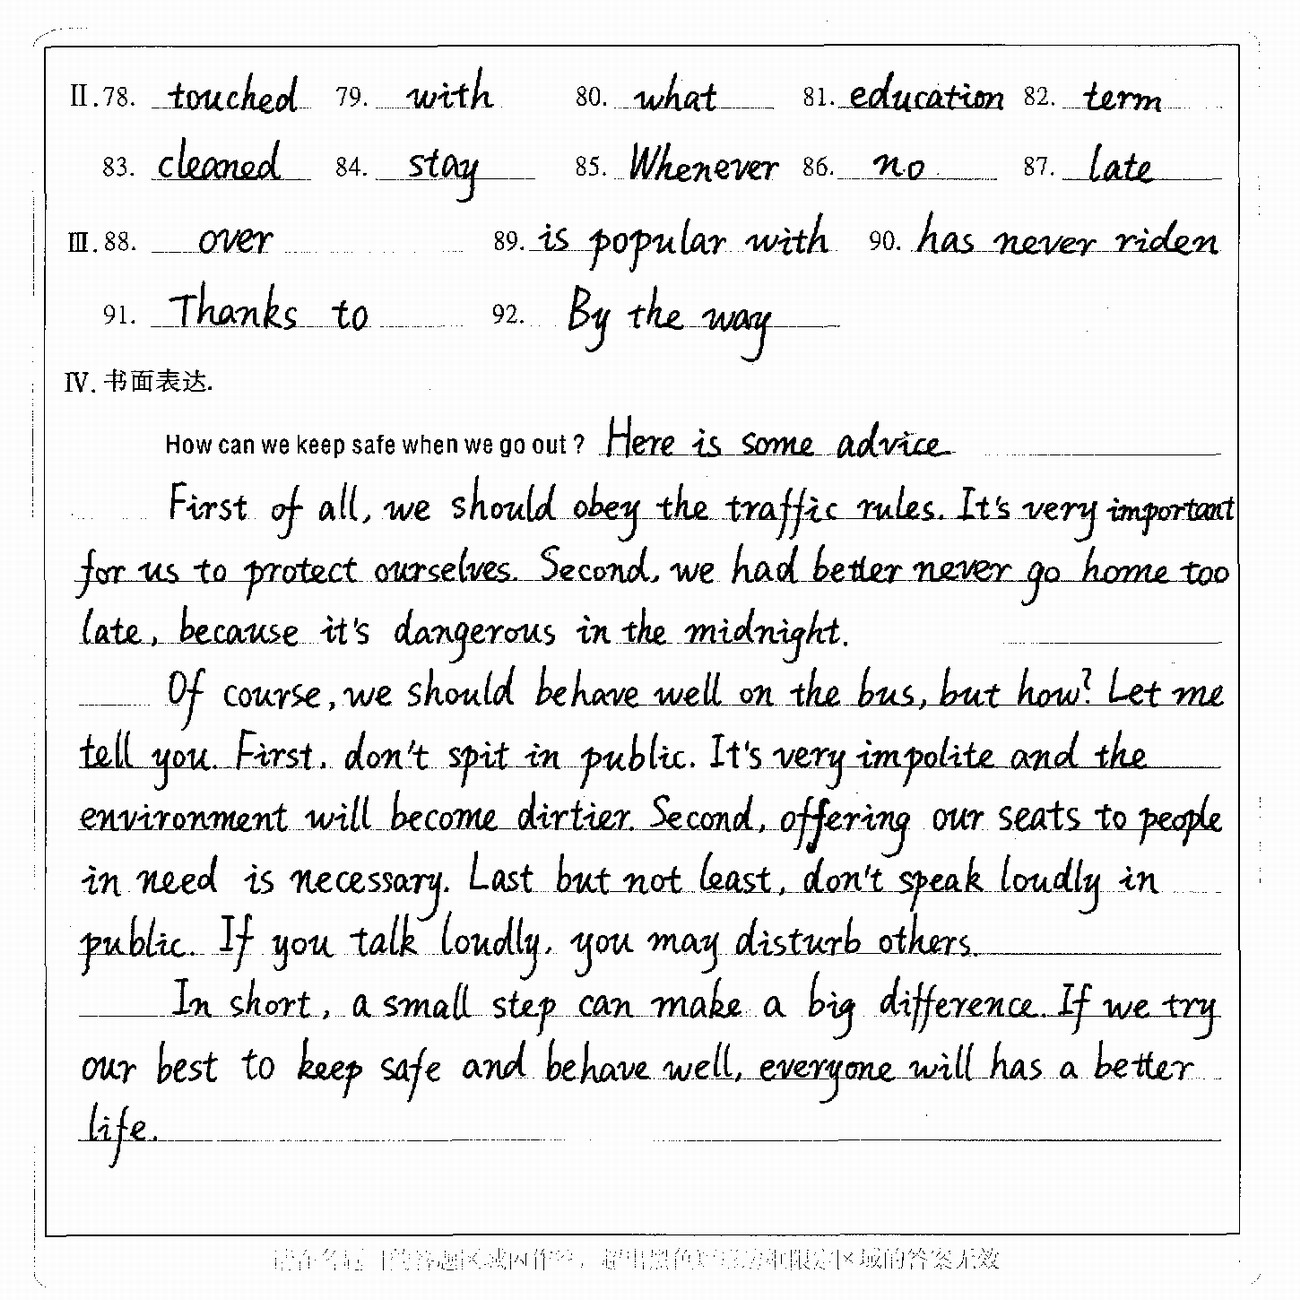 II.78. touched 79. with 80. what 81. education 82. term
83. cleaned 84. stay 85. Whenever 86. no 87. late
III.88. over 89. is popular with 90. has never riden
91. Thanks to 92. By the way
IV.书面表达.
How can we keep safe when we go out? Here is some advice
First of all, we should obey the traffic rules. It's very important
for us to protect ourselves. Second, we had better never go home too
late, because it's dangerous in the midnight.
Of course, we should behave well on the bus, but how? Let me
tell you. First, don't spit in public. It's very impolite and the
environment will become dirtier. Second, offering our seats to people
in need is necessary. Last but not least, don't speak loudly in
public. If you talk loudly, you may disturb others.
In short, a small step can make a big difference. If we try
our best to keep safe and behave well, everyone will has a better
life.
区域的答案无效